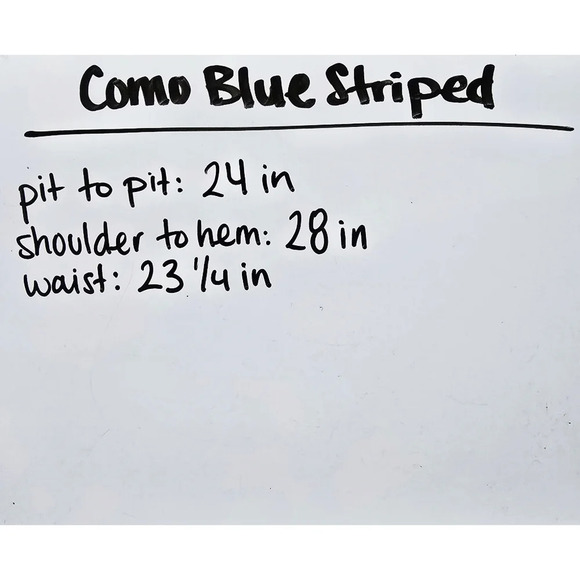 Como Blue Striped
pit to pit: 24 in
shoulder to hem: 28 in
waist: 23 1/4 in